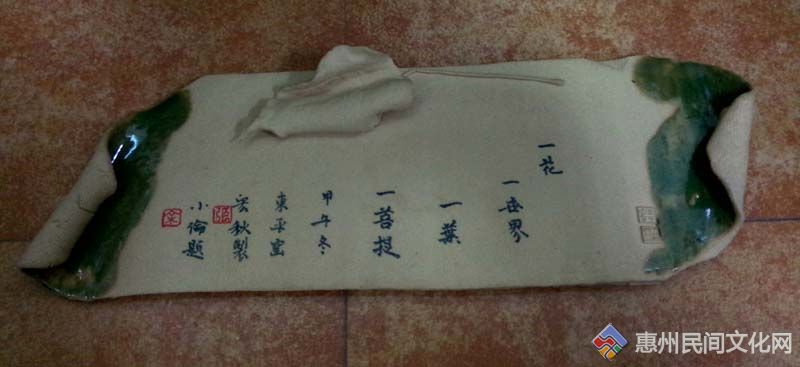 一花
一世界
一葉
一菩提
甲午冬
東平窑
云秋製
小倫題
惠州民间文化网